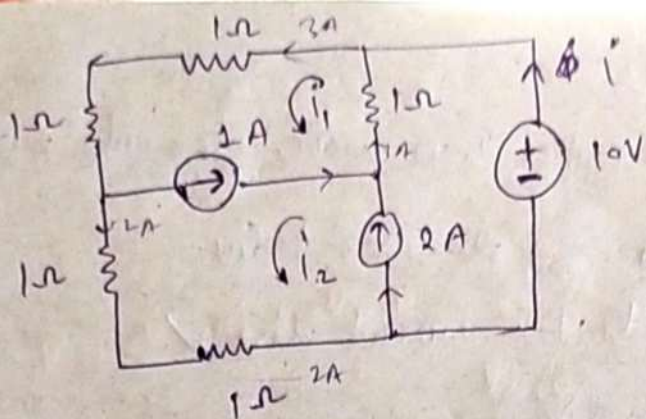 1Ω 3A
1Ω 1A i₁ 1Ω i
1A 10V
2A
+
-
1Ω i₂ 2A
1Ω 2A